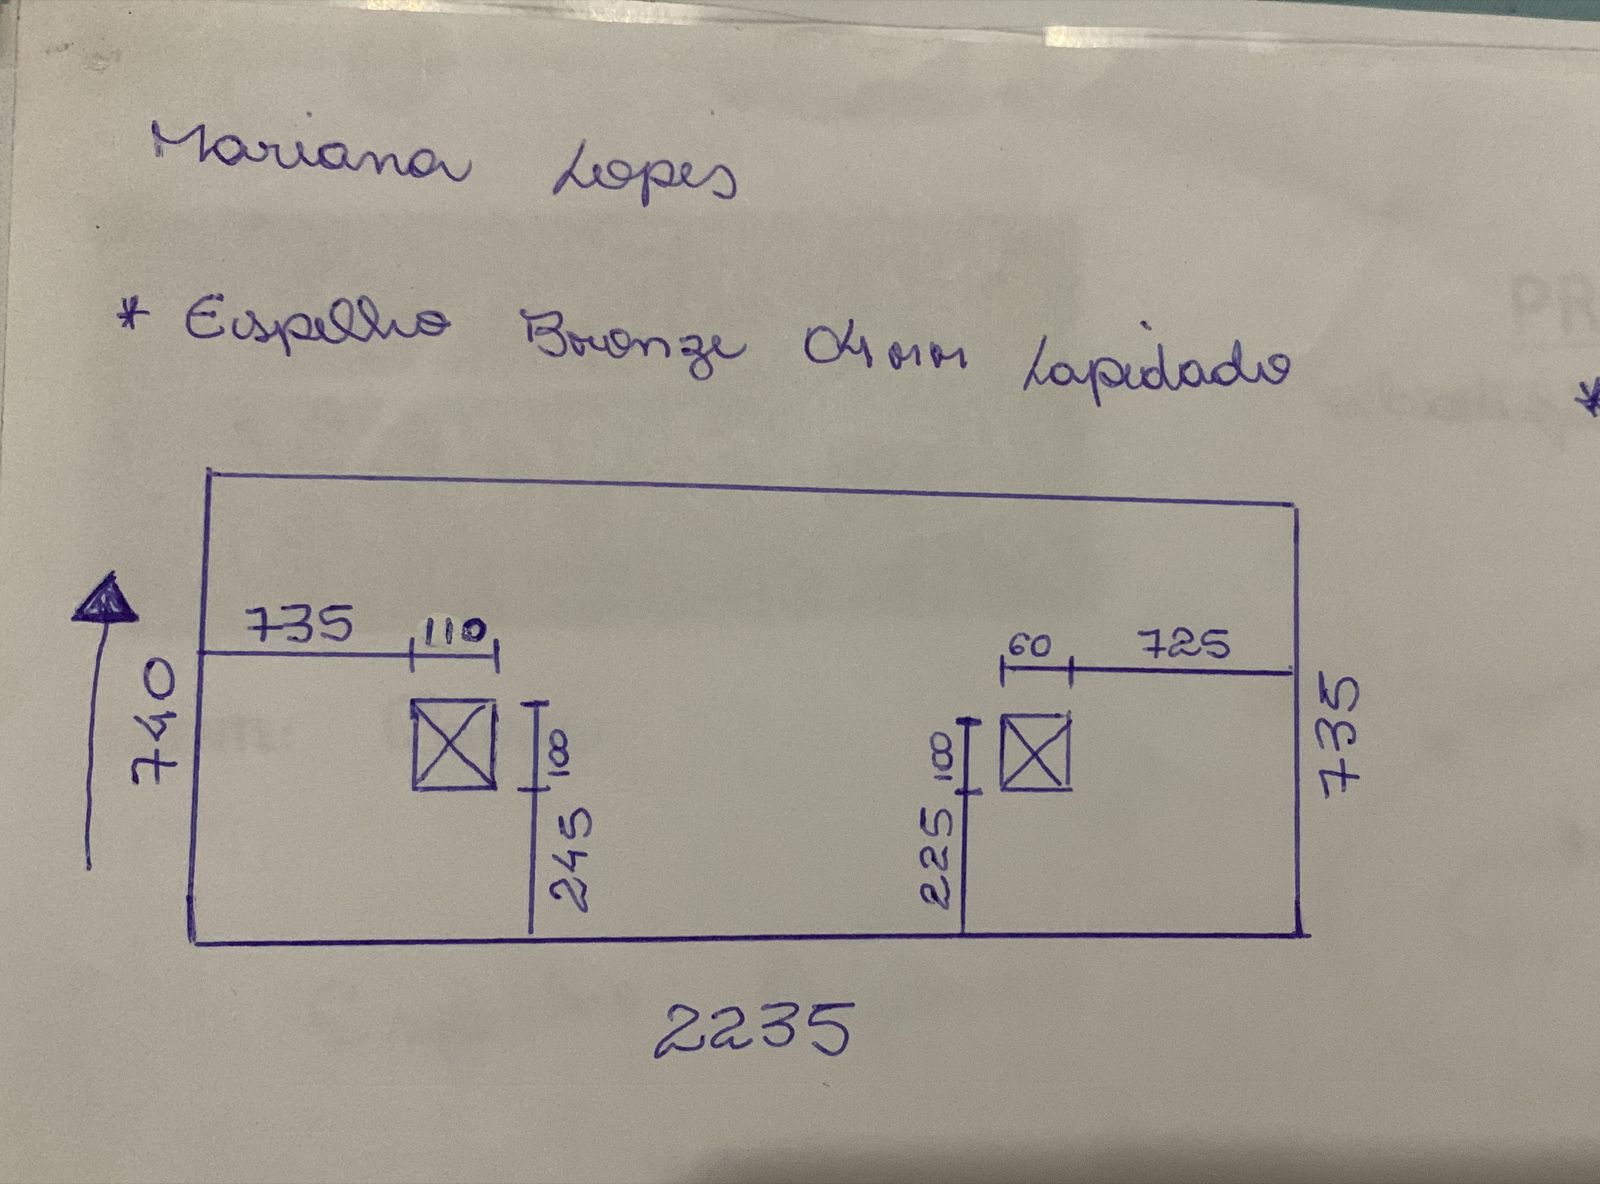 Mariana Lopes
* Espelho Bronze 04mm Lapidado
*
735 110
60 725
740
100
245
100
225
735
2235